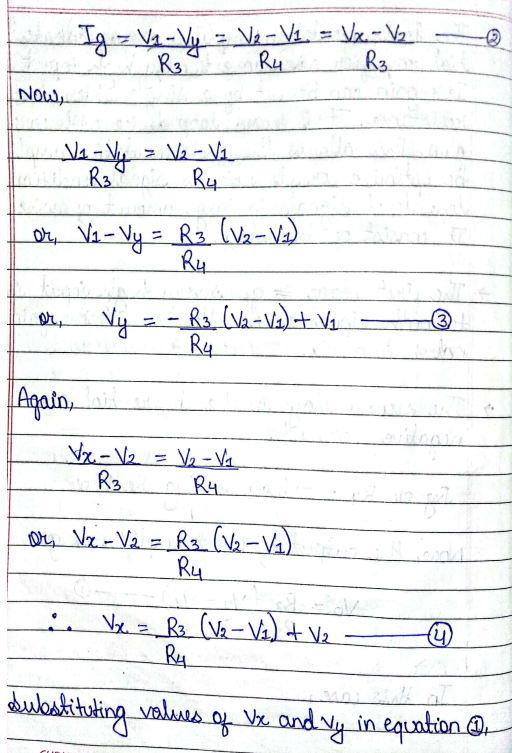 Ig = V1 - Vy / R3 = V2 - V1 / R4 = Vx - V2 / R3 — ②
Now,
V1 - Vy / R3 = V2 - V1 / R4
or, V1 - Vy = R3 / R4 (V2 - V1)
or, Vy = - R3 / R4 (V2 - V1) + V1 — ③
Again,
Vx - V2 / R3 = V2 - V1 / R4
or, Vx - V2 = R3 / R4 (V2 - V1)
∴ Vx = R3 / R4 (V2 - V1) + V2 — ④
Substituting values of Vx and Vy in equation ①,